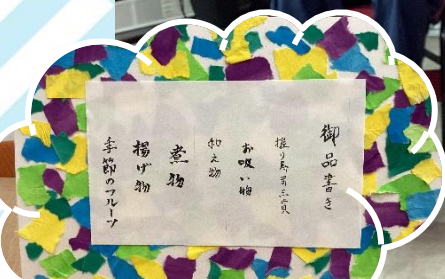 御品書き
握り寿司三貫
お吸い物
和え物
煮物
揚げ物
季節のフルーツ